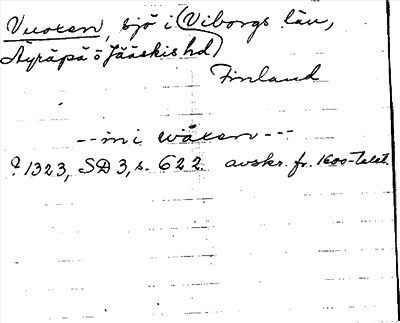 Vuoxen, sjö i (Viborgs län,
Äyräpä o Jääskis hd)
Finland
--- mi wäxen ---
? 1323, SD 3, s. 622. avskr. fr. 1600-talet.